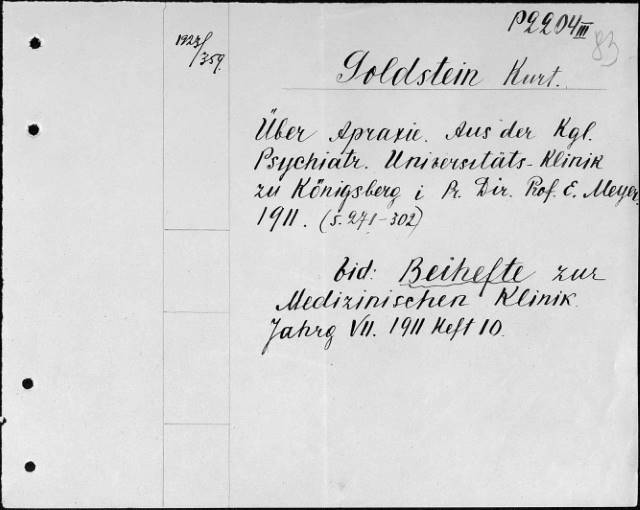 P2204 III
83
1923/359.
Goldstein Kurt.
Über Apraxie. Aus der Kgl.
Psychiatr. Universitäts-Klinik
zu Königsberg i Pr. Dir. Prof. E. Meyer.
1911. (S. 271-302)
bid: Beihefte zur
Medizinischen Klinik.
Jahrg VII. 1911 Heft 10.